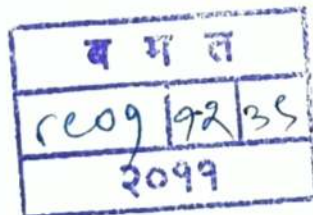 ब म त
८८०९ १२ ३५
२०११